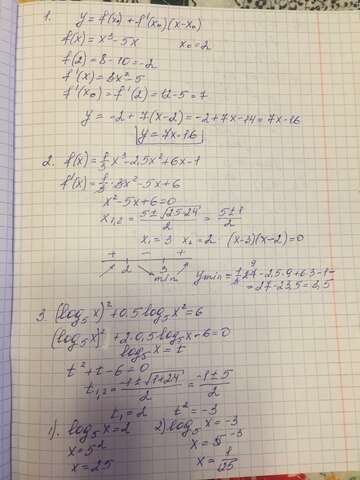 1. y = f(x₀) + f'(x₀)(x-x₀)
f(x) = x³-5x x₀=2
f(2) = 8-10 = -2
f'(x) = 3x²-5
f'(x₀) = f'(2) = 12-5 = 7
y = -2 + 7(x-2) = -2+7x-14 = 7x-16
y = 7x-16
2. f(x) = 1/3 x³ -2,5x² +6x-1
f'(x) = 1/3 · 3x² -5x+6
x²-5x+6=0
x₁,₂ = (5±√(25-24))/2 = (5±1)/2
x₁=3 x₂=2 (x-3)(x-2)=0
+ - +
2 3
min
ymin = 1/3 · 27 - 2,5·9 + 6·3 - 1 =
= 27-23,5 = 3,5
3. (log₅x)² + 0,5 log₅x² = 6
(log₅x)² + 2·0,5 log₅x - 6 = 0
log₅x = t
t² + t - 6 = 0
t₁,₂ = (-1±√(1+24))/2 = (-1±5)/2
t₁=2 t²=-3
1). log₅x=2 2) log₅x=-3
x=5² x=5⁻³
x=25 x=1/125